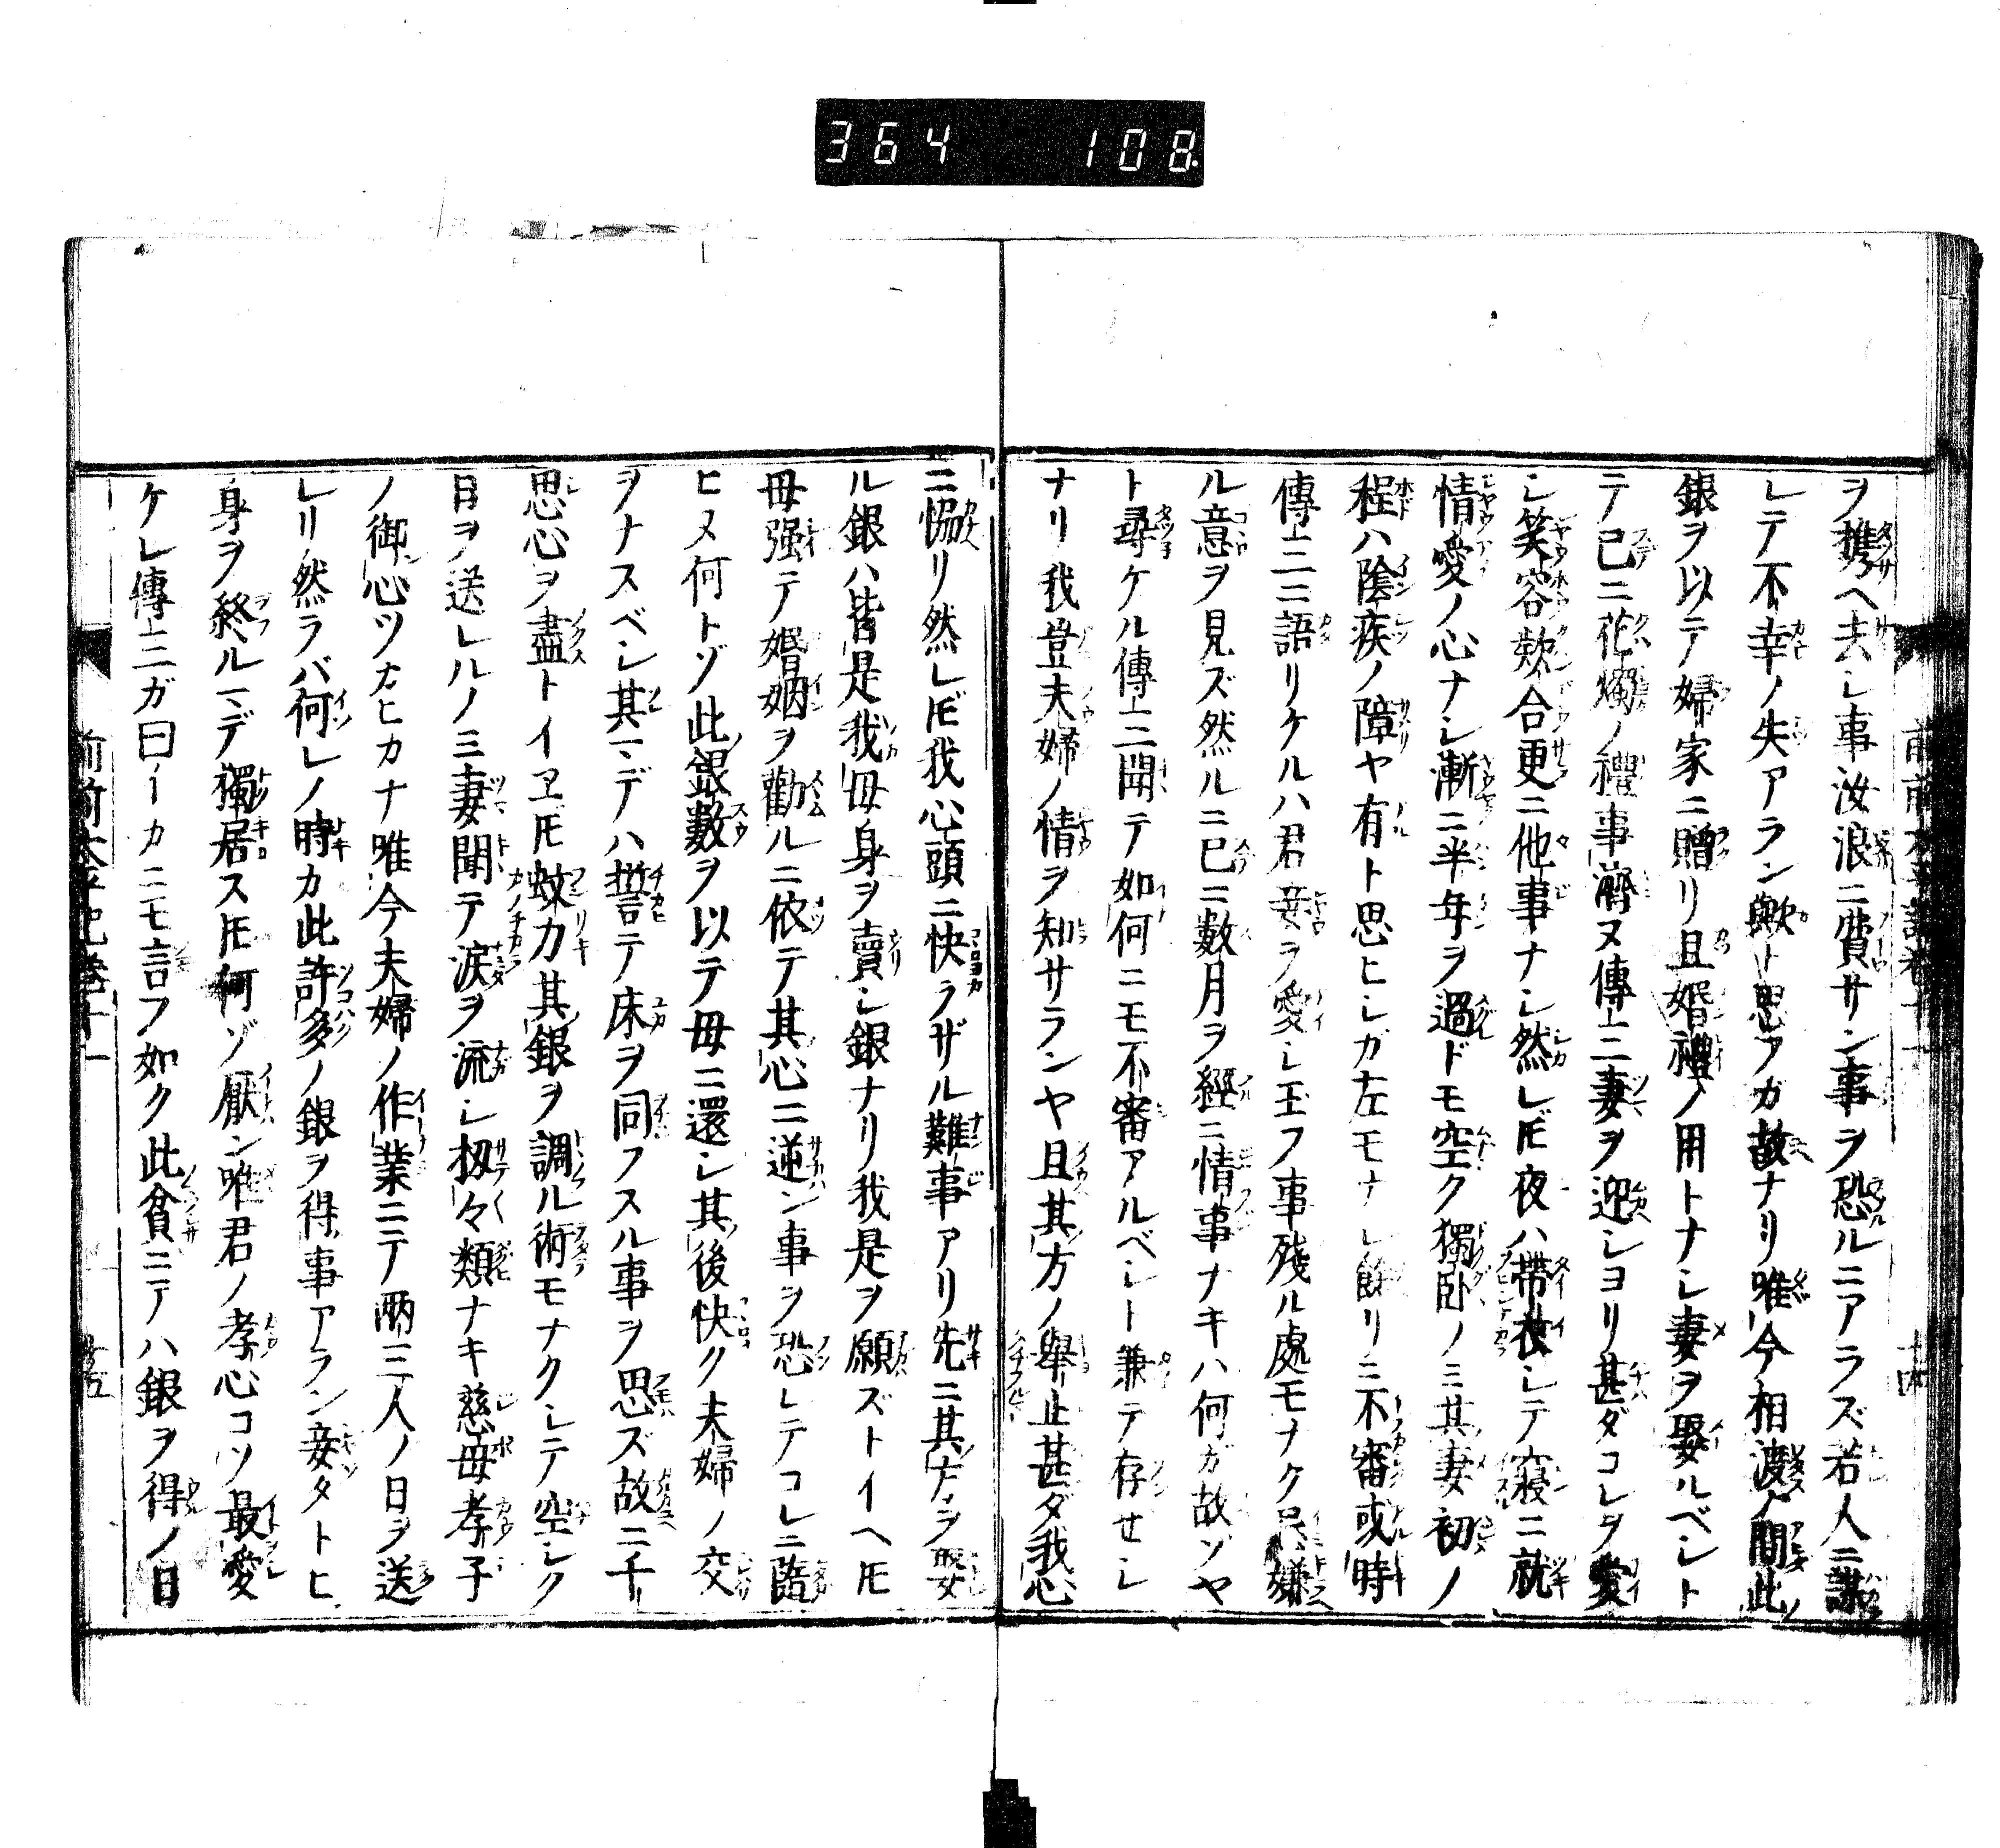 364 108
ヲ携ヘ去シ事汝浪ニ費サン事ヲ恐ルニアラズ若人ニ謀
レテ不幸ノ失アラン歟ト思フガ故ナリ唯今相渡ス間此
銀ヲ以テ婦家ニ贈リ且婚禮ノ用トナシ妻ヲ娶ルベシト
ニテ已ニ花燭ノ禮事濟ヌ傳二三妻ヲ迎シヨリ甚ダコレヲ愛
シ笑容欸合更ニ他事ナシ然レ𪜈夜ハ帶衣シテ寢ニ就
情愛ノ心ナシ漸ニ半年ヲ過ドモ空ク獨卧ノミ其妻初ノ
程ハ陰疾ノ障ヤ有ト思ヒシガ左モナシ餘リニ不審或時
傳二三ニ語リケルハ君妾ヲ愛シ玉フ事殘ル處モナク忌嫌
ル意ヲ見ズ然ルニ已ニ數月ヲ經ニ情事ナキハ何ガ故ソヤ
ト尋ケル傳二三聞テ如何ニモ不審アルベシト兼テ存セシ
ナリ我豈夫婦ノ情ヲ知サランヤ且其方ノ舉止甚ダ我心
ニ恊リ然レ𪜈我心頭ニ快ラザル難事アリ先ニ其方ヲ娶
ル銀ハ皆是我母身ヲ賣シ銀ナリ我是ヲ願ズトイヘ𪜈
母强テ婚姻ヲ勸ルニ依テ其心ニ逆ン事ヲ恐レテコレニ臨
ヒヌ何トゾ此銀數ヲ以テ母ニ還シ其後快ク夫婦ノ交
ヲナスベシ其マデハ誓テ床ヲ同フスル事ヲ思ズ故ニ千〻
思心ヲ盡トイヱ𪜈蚊力其銀ヲ調ル術モナクシテ空シク
日ヲ送レルノミ妻聞テ淚ヲ流シ扨々類ナキ慈母孝子
ノ御心ツカヒカナ唯今夫婦ノ作業ニテ兩三人ノ日ヲ送
レリ然ラバ何レノ時カ此許多ノ銀ヲ得事アラン妾タトヒ
身ヲ終ルマデ獨居ス𪜈何ゾ厭ン唯君ノ孝心コソ最愛
ケレ傳二三ガ曰イカニモ言フ如ク此貧ニテハ銀ヲ得ノ日
前前太平記卷十一